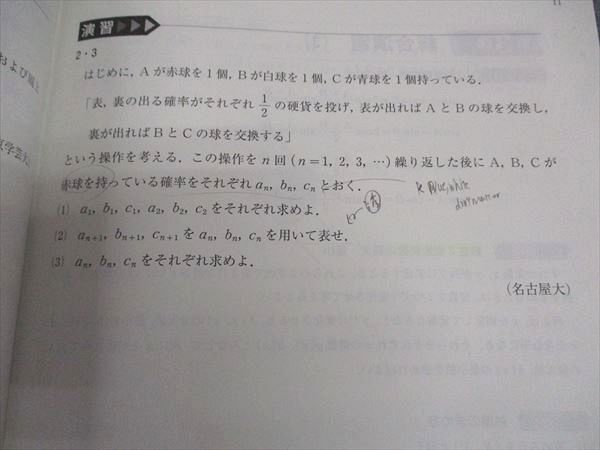 11
演習
2・3
はじめに，Aが赤球を1個，Bが白球を1個，Cが青球を1個持っている．
「表，裏の出る確率がそれぞれ 1/2 の硬貨を投げ，表が出ればAとBの球を交換し，
裏が出ればBとCの球を交換する」
という操作を考える．この操作を n 回 (n=1, 2, 3, …) 繰り返した後に A, B, C が
赤球を持っている確率をそれぞれ aₙ, bₙ, cₙ とおく．
(1) a₁, b₁, c₁, a₂, b₂, c₂ をそれぞれ求めよ．
(2) aₙ₊₁, bₙ₊₁, cₙ₊₁ を aₙ, bₙ, cₙ を用いて表せ．
(3) aₙ, bₙ, cₙ をそれぞれ求めよ．
(名古屋大)
および
京学芸大